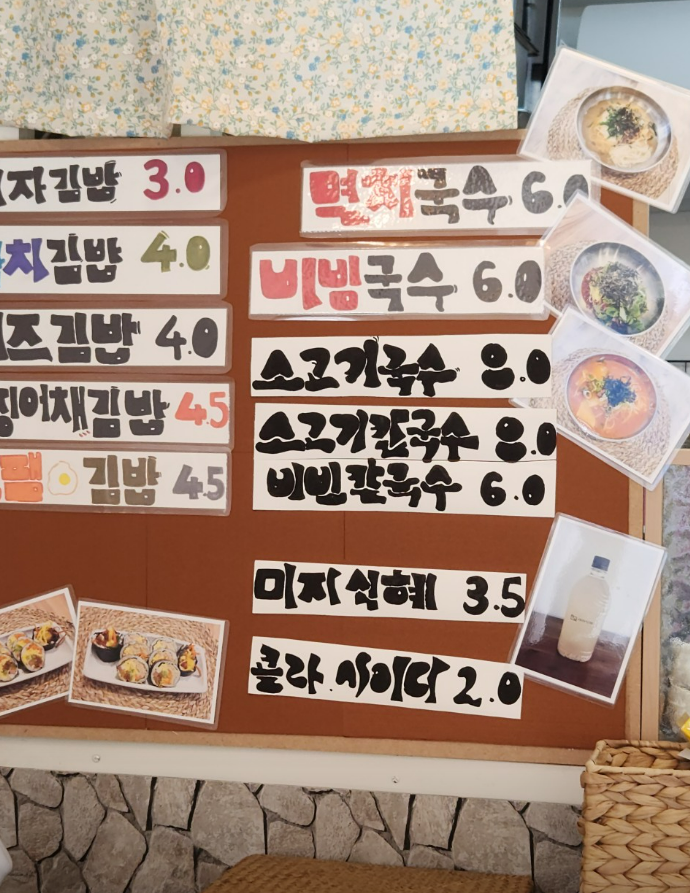 자김밥 3.0
치김밥 4.0
즈김밥 4.0
어채김밥 4.5
땡 김밥 4.5
멸치국수 6.0
비빔국수 6.0
소고기국수 8.0
소고기칼국수 8.0
비빔칼국수 6.0
미자식혜 3.5
콜라.사이다 2.0